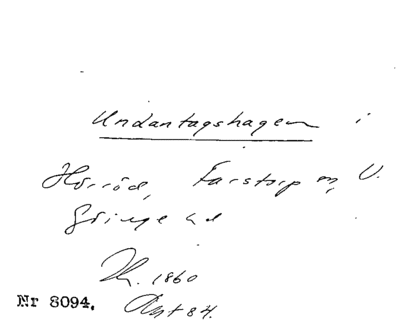 Undantagshagen i
Hörröd, Farstorp sn, V.
Göinge hd
1860
Nr 8094.